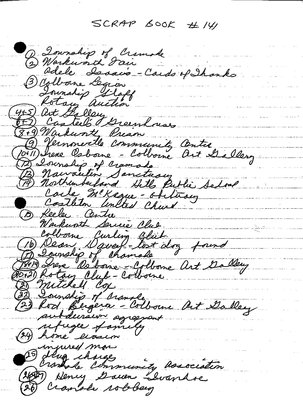 SCRAP BOOK #141
1 Township of Cramahe
2 Warkworth Fair
Adele Isaacs - Cards of Thanks
3 Colborne Legion
Township Staff
Rotary Auction
4+5 Art Gallery
6+7 Greenhouses
8+9 Warkworth Prison
9 Vernonville Community Centre
10+11 Irene Osborne - Colborne Art Gallery
12 Township of Cramahe
13 Sanctuary
14 Northumberland Hills Public School
Carla McKague - obituary
Castleton United Church
15 Keeler Centre
Warkworth Service Club
Colborne Curling Club
16 Dean, - lost dog found
17 Township of Cramahe
18+19 Irene Osborne - Colborne Art Gallery
20+21 Rotary Club - Colborne
21 Mitchell Cox
22 Township of Cramahe
23 - Colborne Art Gallery
subdivision agreement
refugee family
24 home invasion
injured man
25 drug charges
Cramahe Community Association
26+27 Henry - Ivanhoe
28 Cramahe robbery